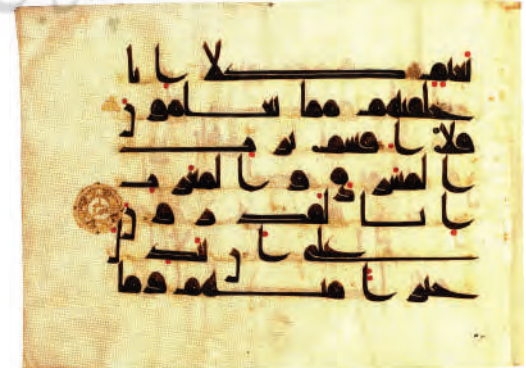 نعيم كلا انا
خلقنهم مما يعلمون
فلا اقسم برب
المشرق والمغرب
انا لقدرون
على ان نبدل
خيرا منهم وما